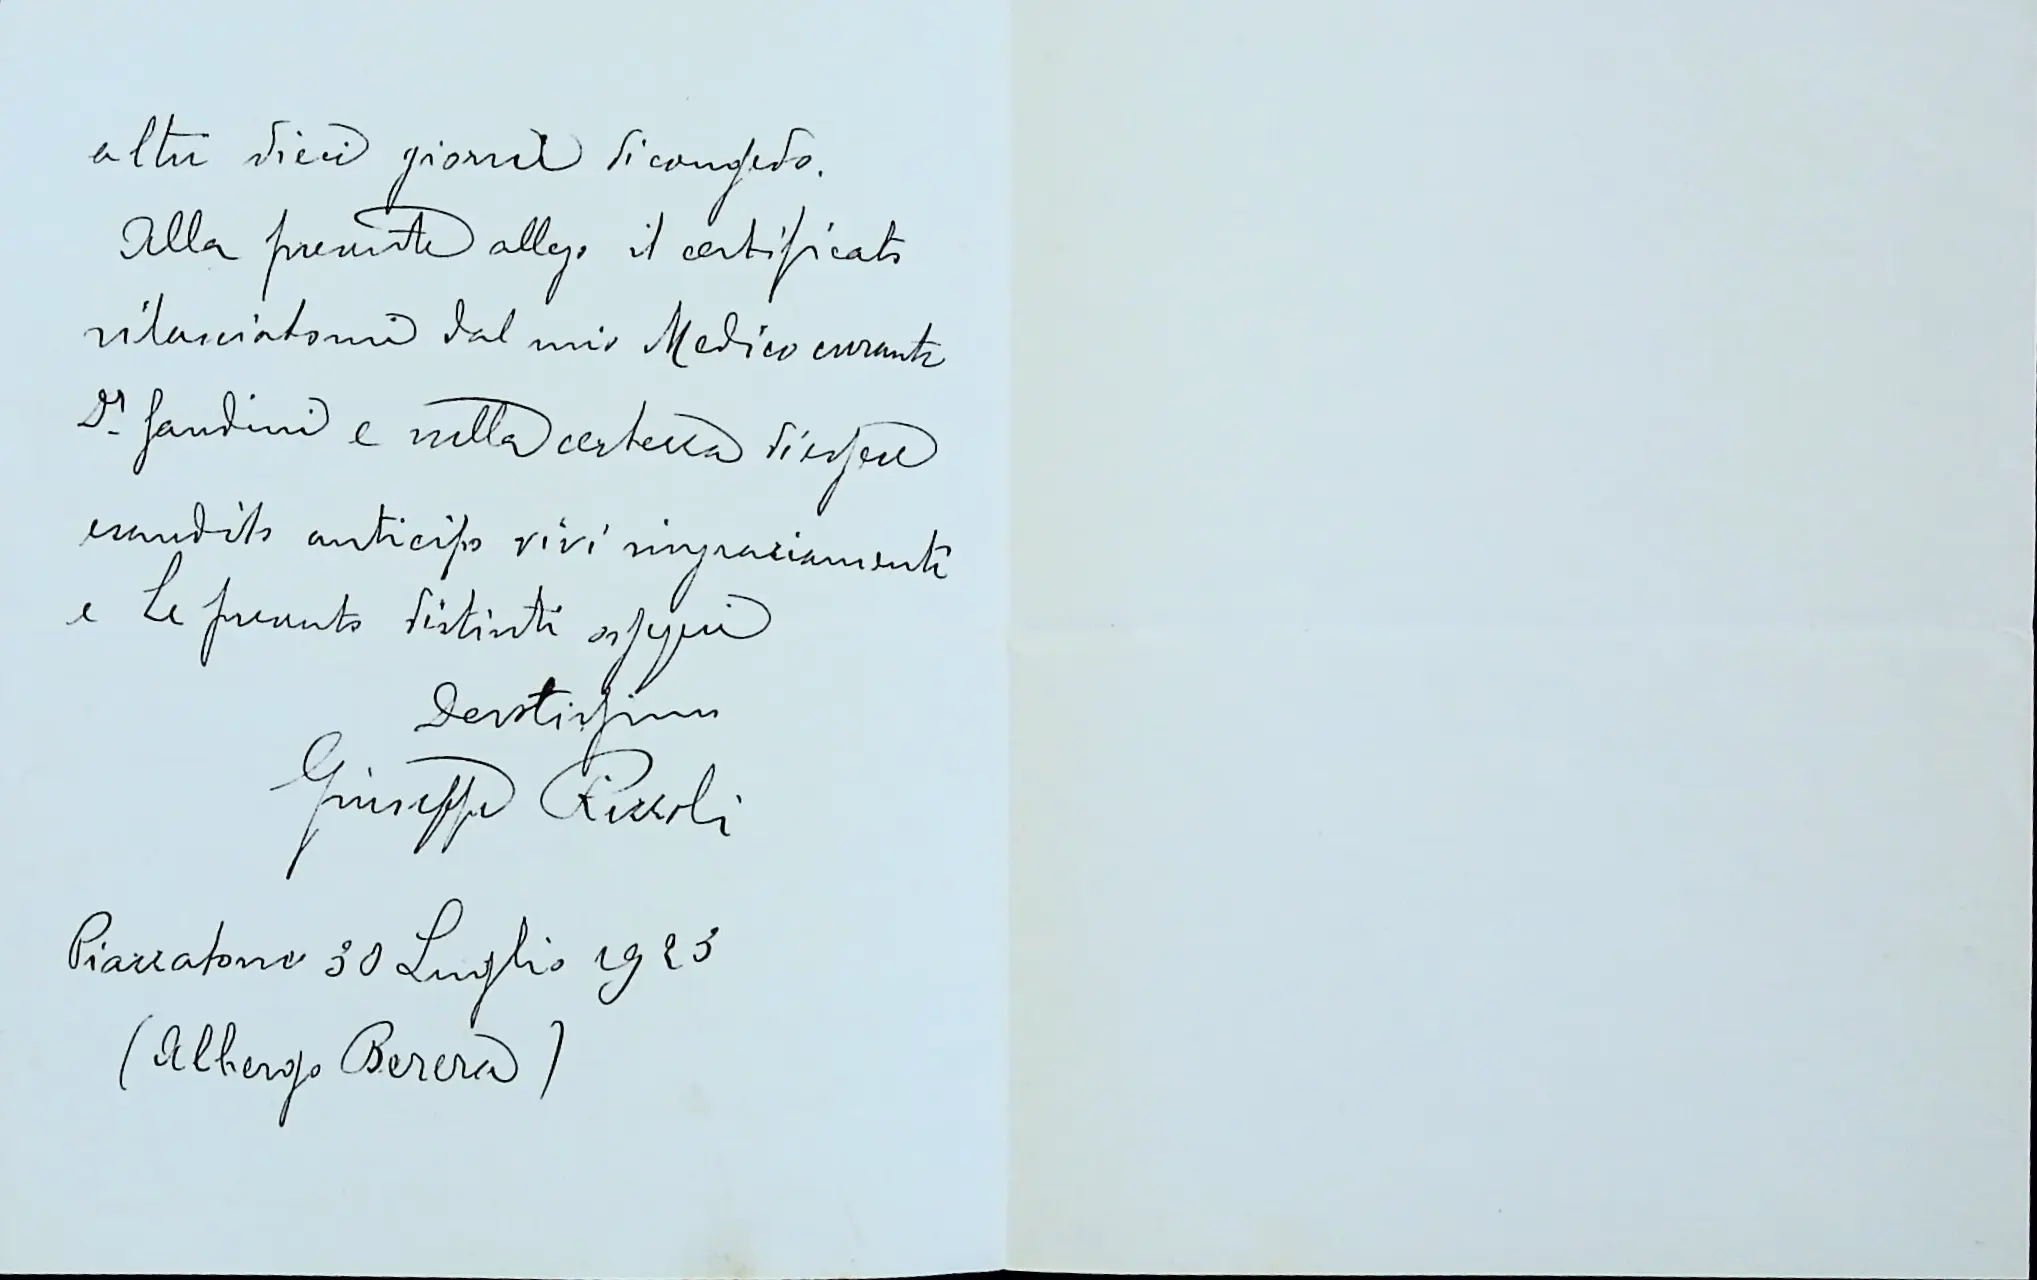 altri dieci giorni di congedo.
Alla presente allego il certificato
rilasciatomi dal mio Medico curante
Dr. Gandini e nella certezza di essere
esaudito anticipo vivi ringraziamenti
e Le presento distinti ossequi
Devotissimo
Giuseppe Rizzoli
Piazzatorre 30 Luglio 1923
(Albergo Bererà)